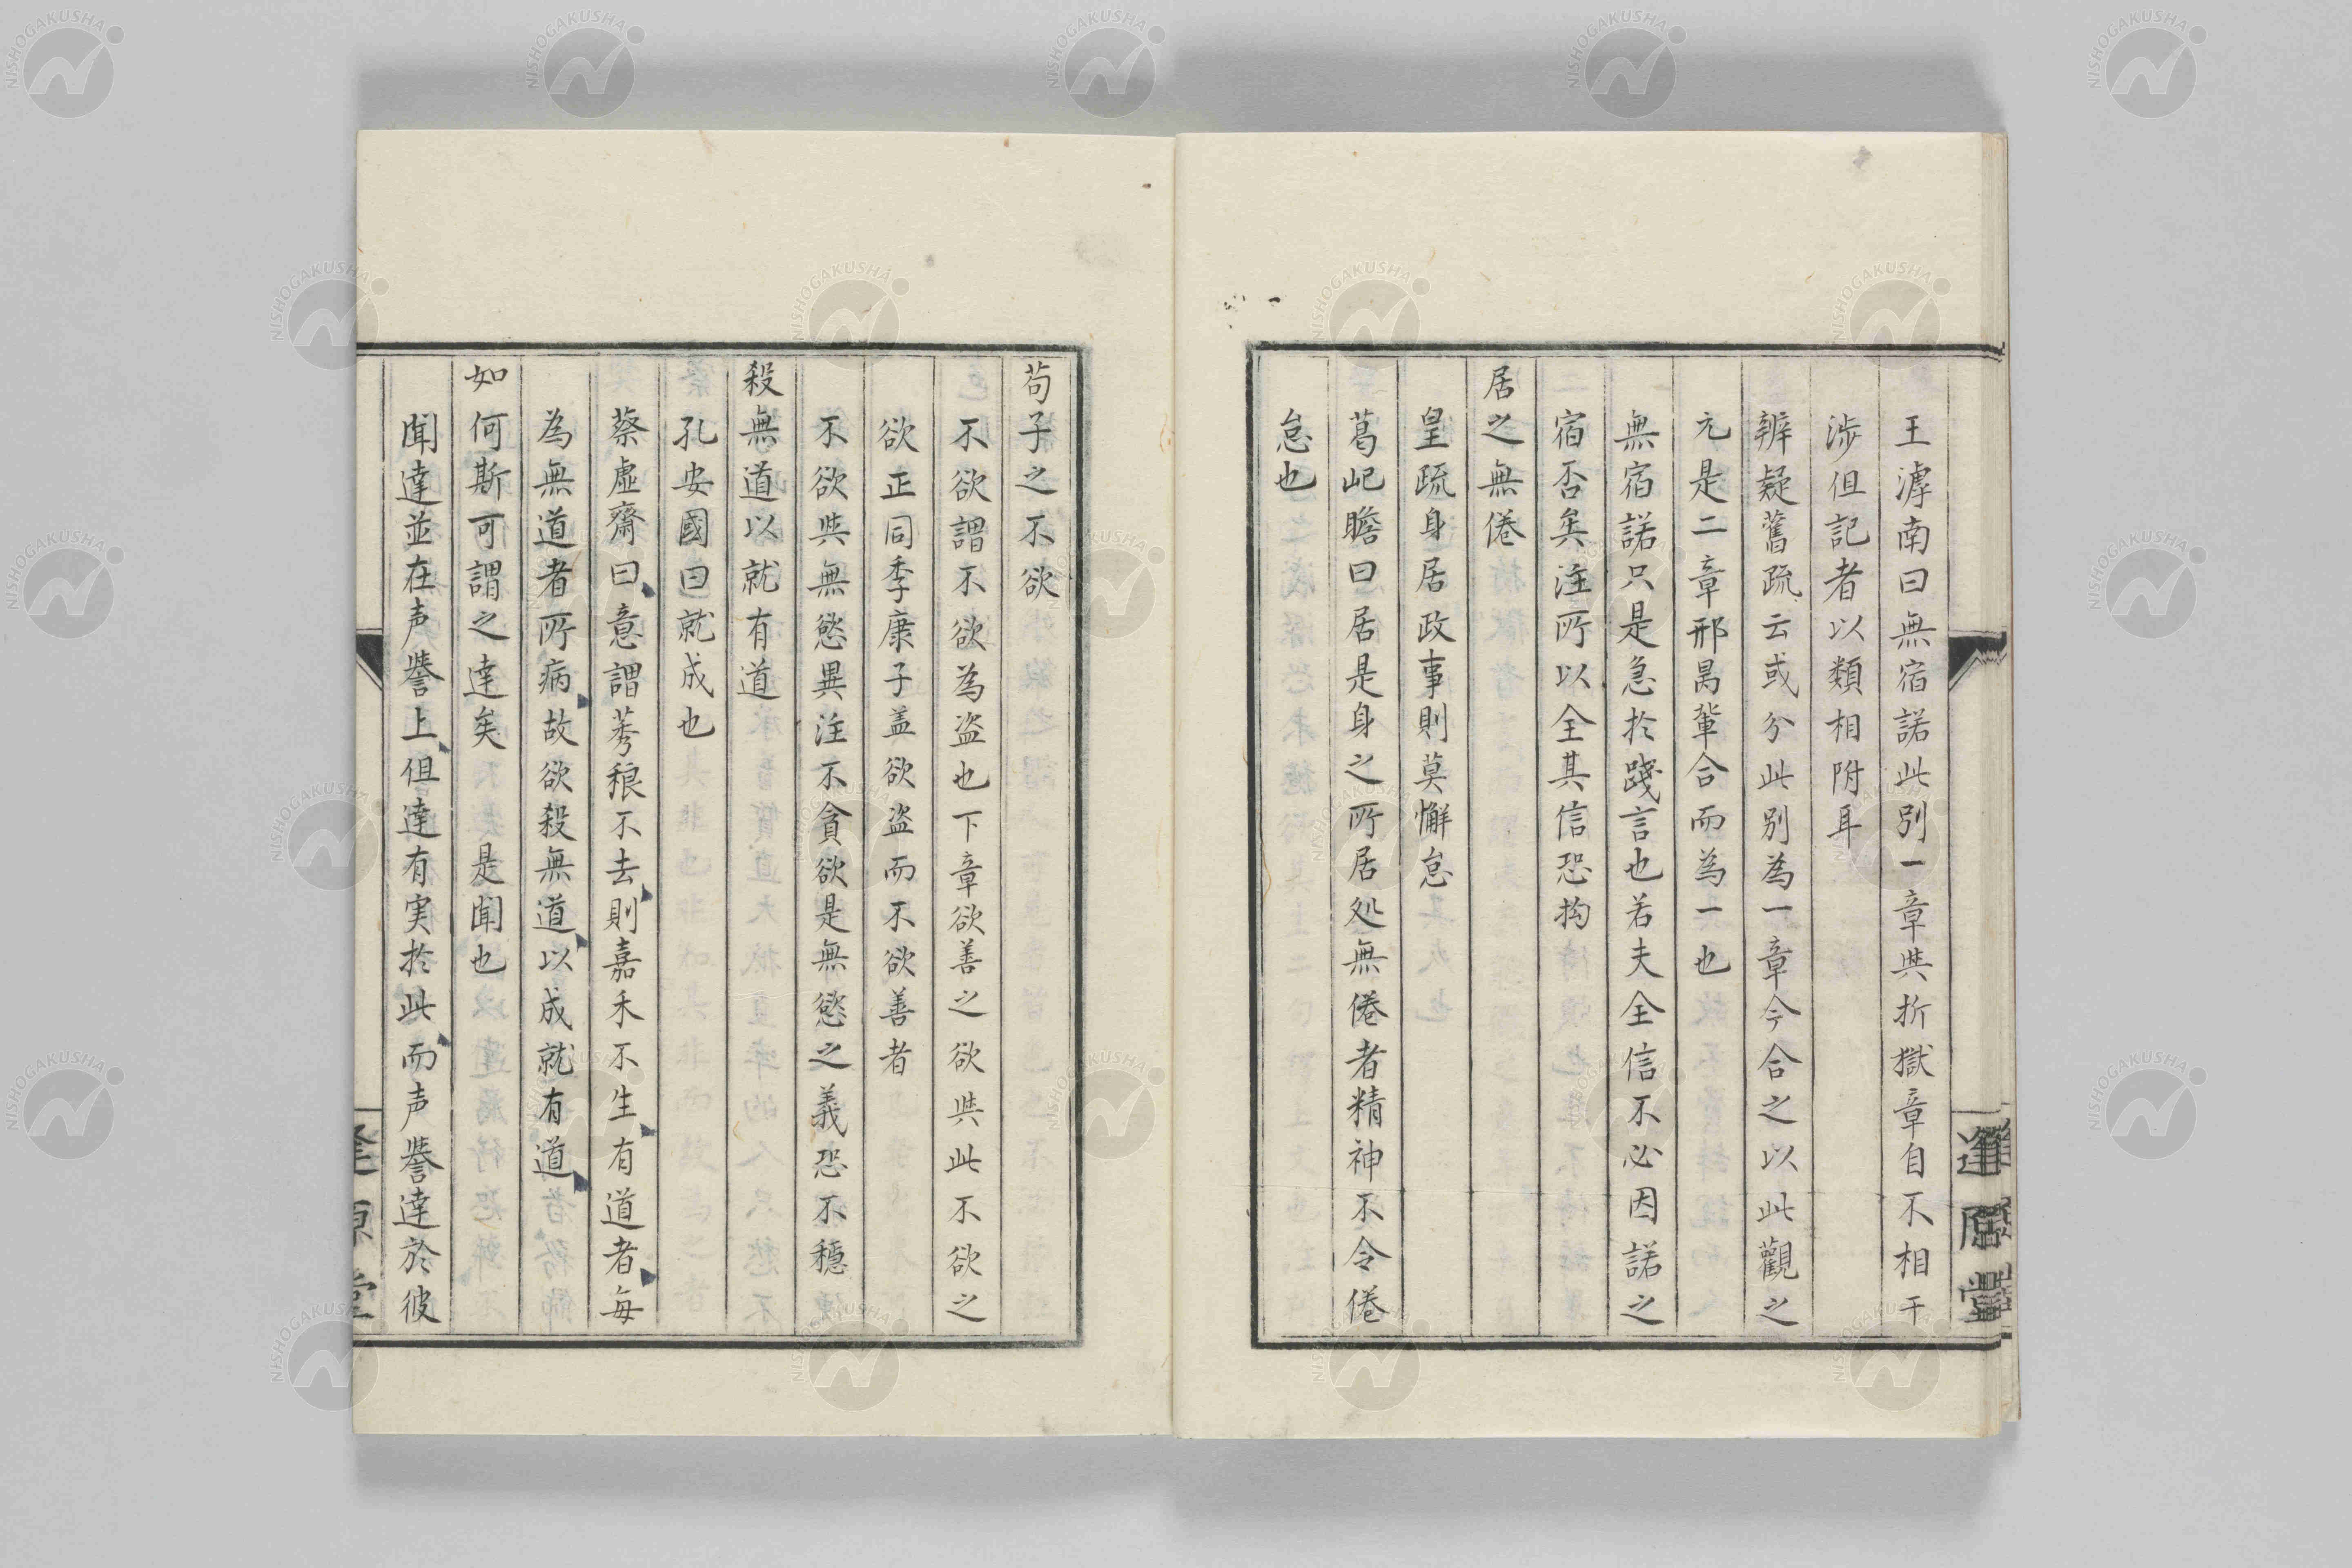 王滹南曰無宿諾此別一章与折獄章自不相干
涉但記者以類相附耳
辨疑舊疏云或分此別為一章今合之以此觀之
元是二章邢昺輩合而為一也
無宿諾只是急於踐言也若夫全信不必因諾之
宿否矣注所以全其信恐拘
居之無倦
皇疏身居政事則莫懈怠
葛屺瞻曰居是身之所居処無倦者精神不令倦
怠也
逢原堂
苟子之不欲
不欲謂不欲為盗也下章欲善之欲与此不欲之
欲正同季康子盖欲盗而不欲善者
不欲与無慾異注不貪欲是無慾之義恐不穏
殺無道以就有道
孔安國曰就成也
蔡虚齋曰意謂莠稂不去則嘉禾不生有道者每
為無道者所病故欲殺無道以成就有道
如何斯可謂之達矣 是聞也
聞達並在声誉上但達有実於此而声誉達於彼
逢原堂